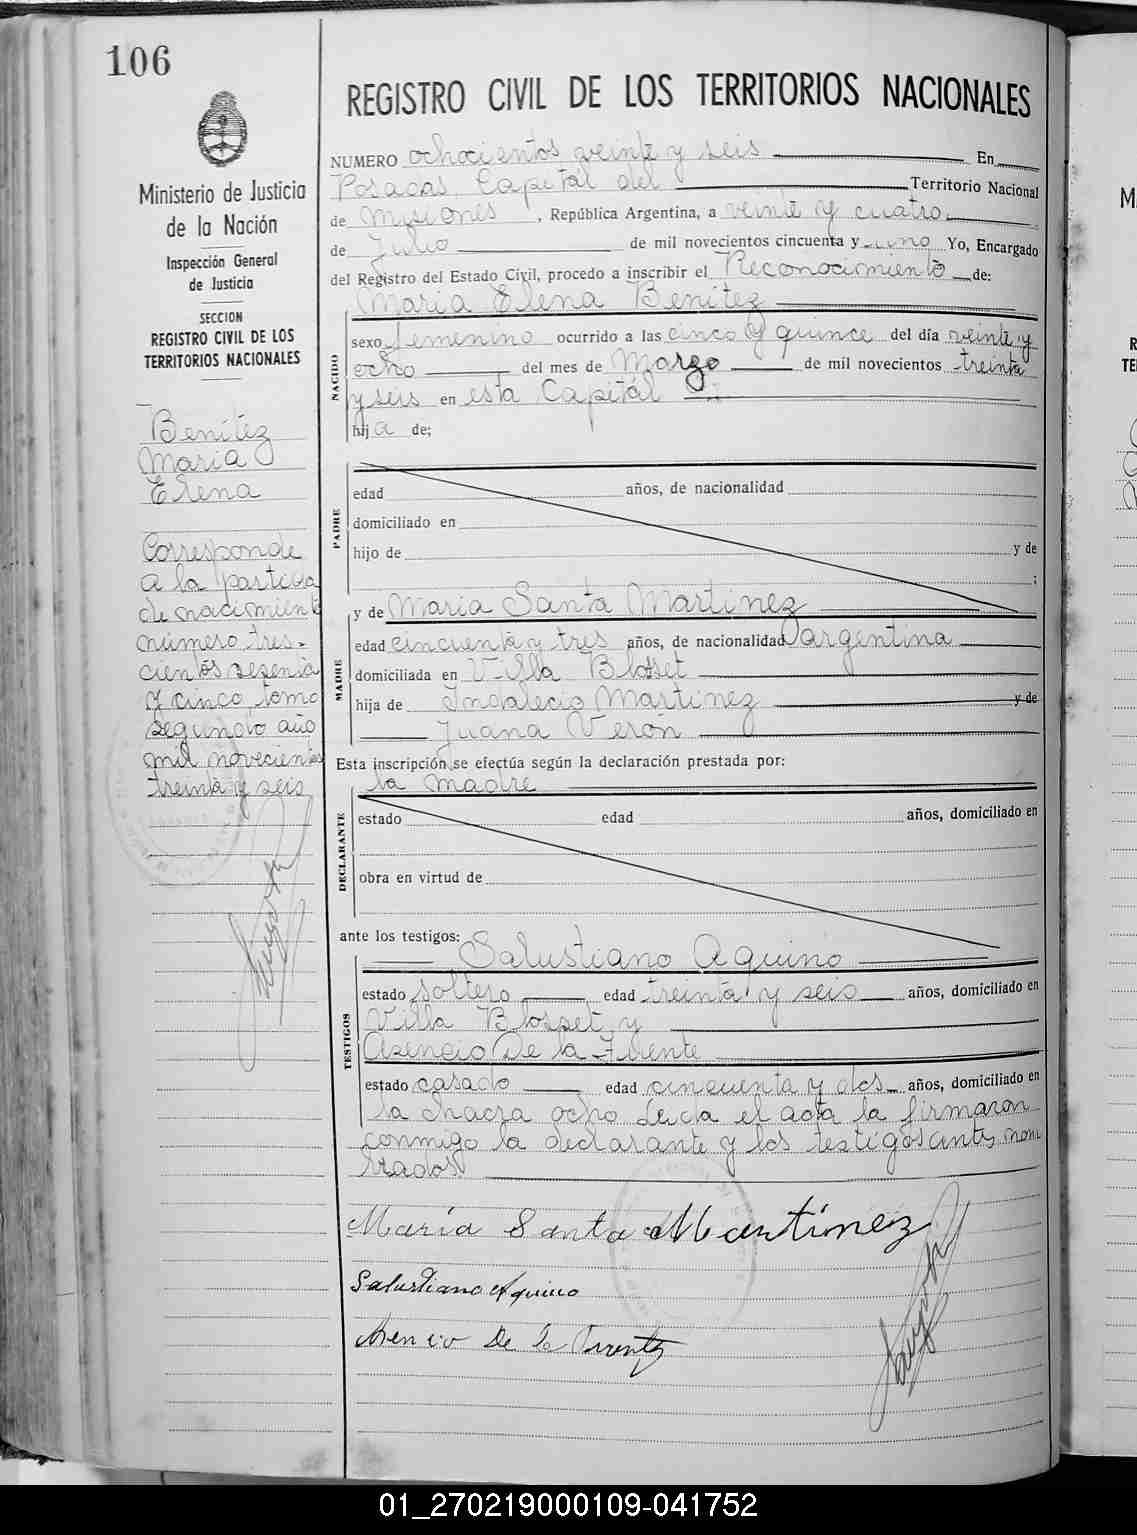 106
Ministerio de Justicia
de la Nación
Inspección General
de Justicia
SECCION
REGISTRO CIVIL DE LOS
TERRITORIOS NACIONALES
Benitez
Maria
Elena
Corresponde
a la partida
de nacimiento
número tres-
cientos sesenta
y cinco tomo
segundo año
mil novecientos
treinta y seis
REGISTRO CIVIL DE LOS TERRITORIOS NACIONALES
NUMERO ochocientos veinte y seis En
Posadas Capital del Territorio Nacional
de Misiones, República Argentina, a veinte y cuatro
de Julio de mil novecientos cincuenta y uno Yo, Encargado
del Registro del Estado Civil, procedo a inscribir el Reconocimiento de:
Maria Elena Benitez
NACIDO
sexo femenino ocurrido a las cinco y quince del día veinte y
ocho del mes de Marzo de mil novecientos treinta
y seis en esta Capital
hija de;
PADRE
edad años, de nacionalidad
domiciliado en
hijo de y de
;
y de Maria Santa Martinez
MADRE
edad cincuenta y tres años, de nacionalidad argentina
domiciliada en Villa Blosset
hija de Indalecio Martinez y de
Juana Verón
Esta inscripción se efectúa según la declaración prestada por:
la madre
DECLARANTE
estado edad años, domiciliado en
obra en virtud de
ante los testigos:
Salustiano Aquino
TESTIGOS
estado soltero edad treinta y seis años, domiciliado en
Villa Blosset y
Asencio De la Fuente
estado casado edad cincuenta y dos años, domiciliado en
la chacra ocho Leida el acta la firmaron
conmigo la declarante y los testigos antes nom
brados
María Santa Martínez
Salustiano Aquino
Asencio De la Fuente
01_270219000109-041752